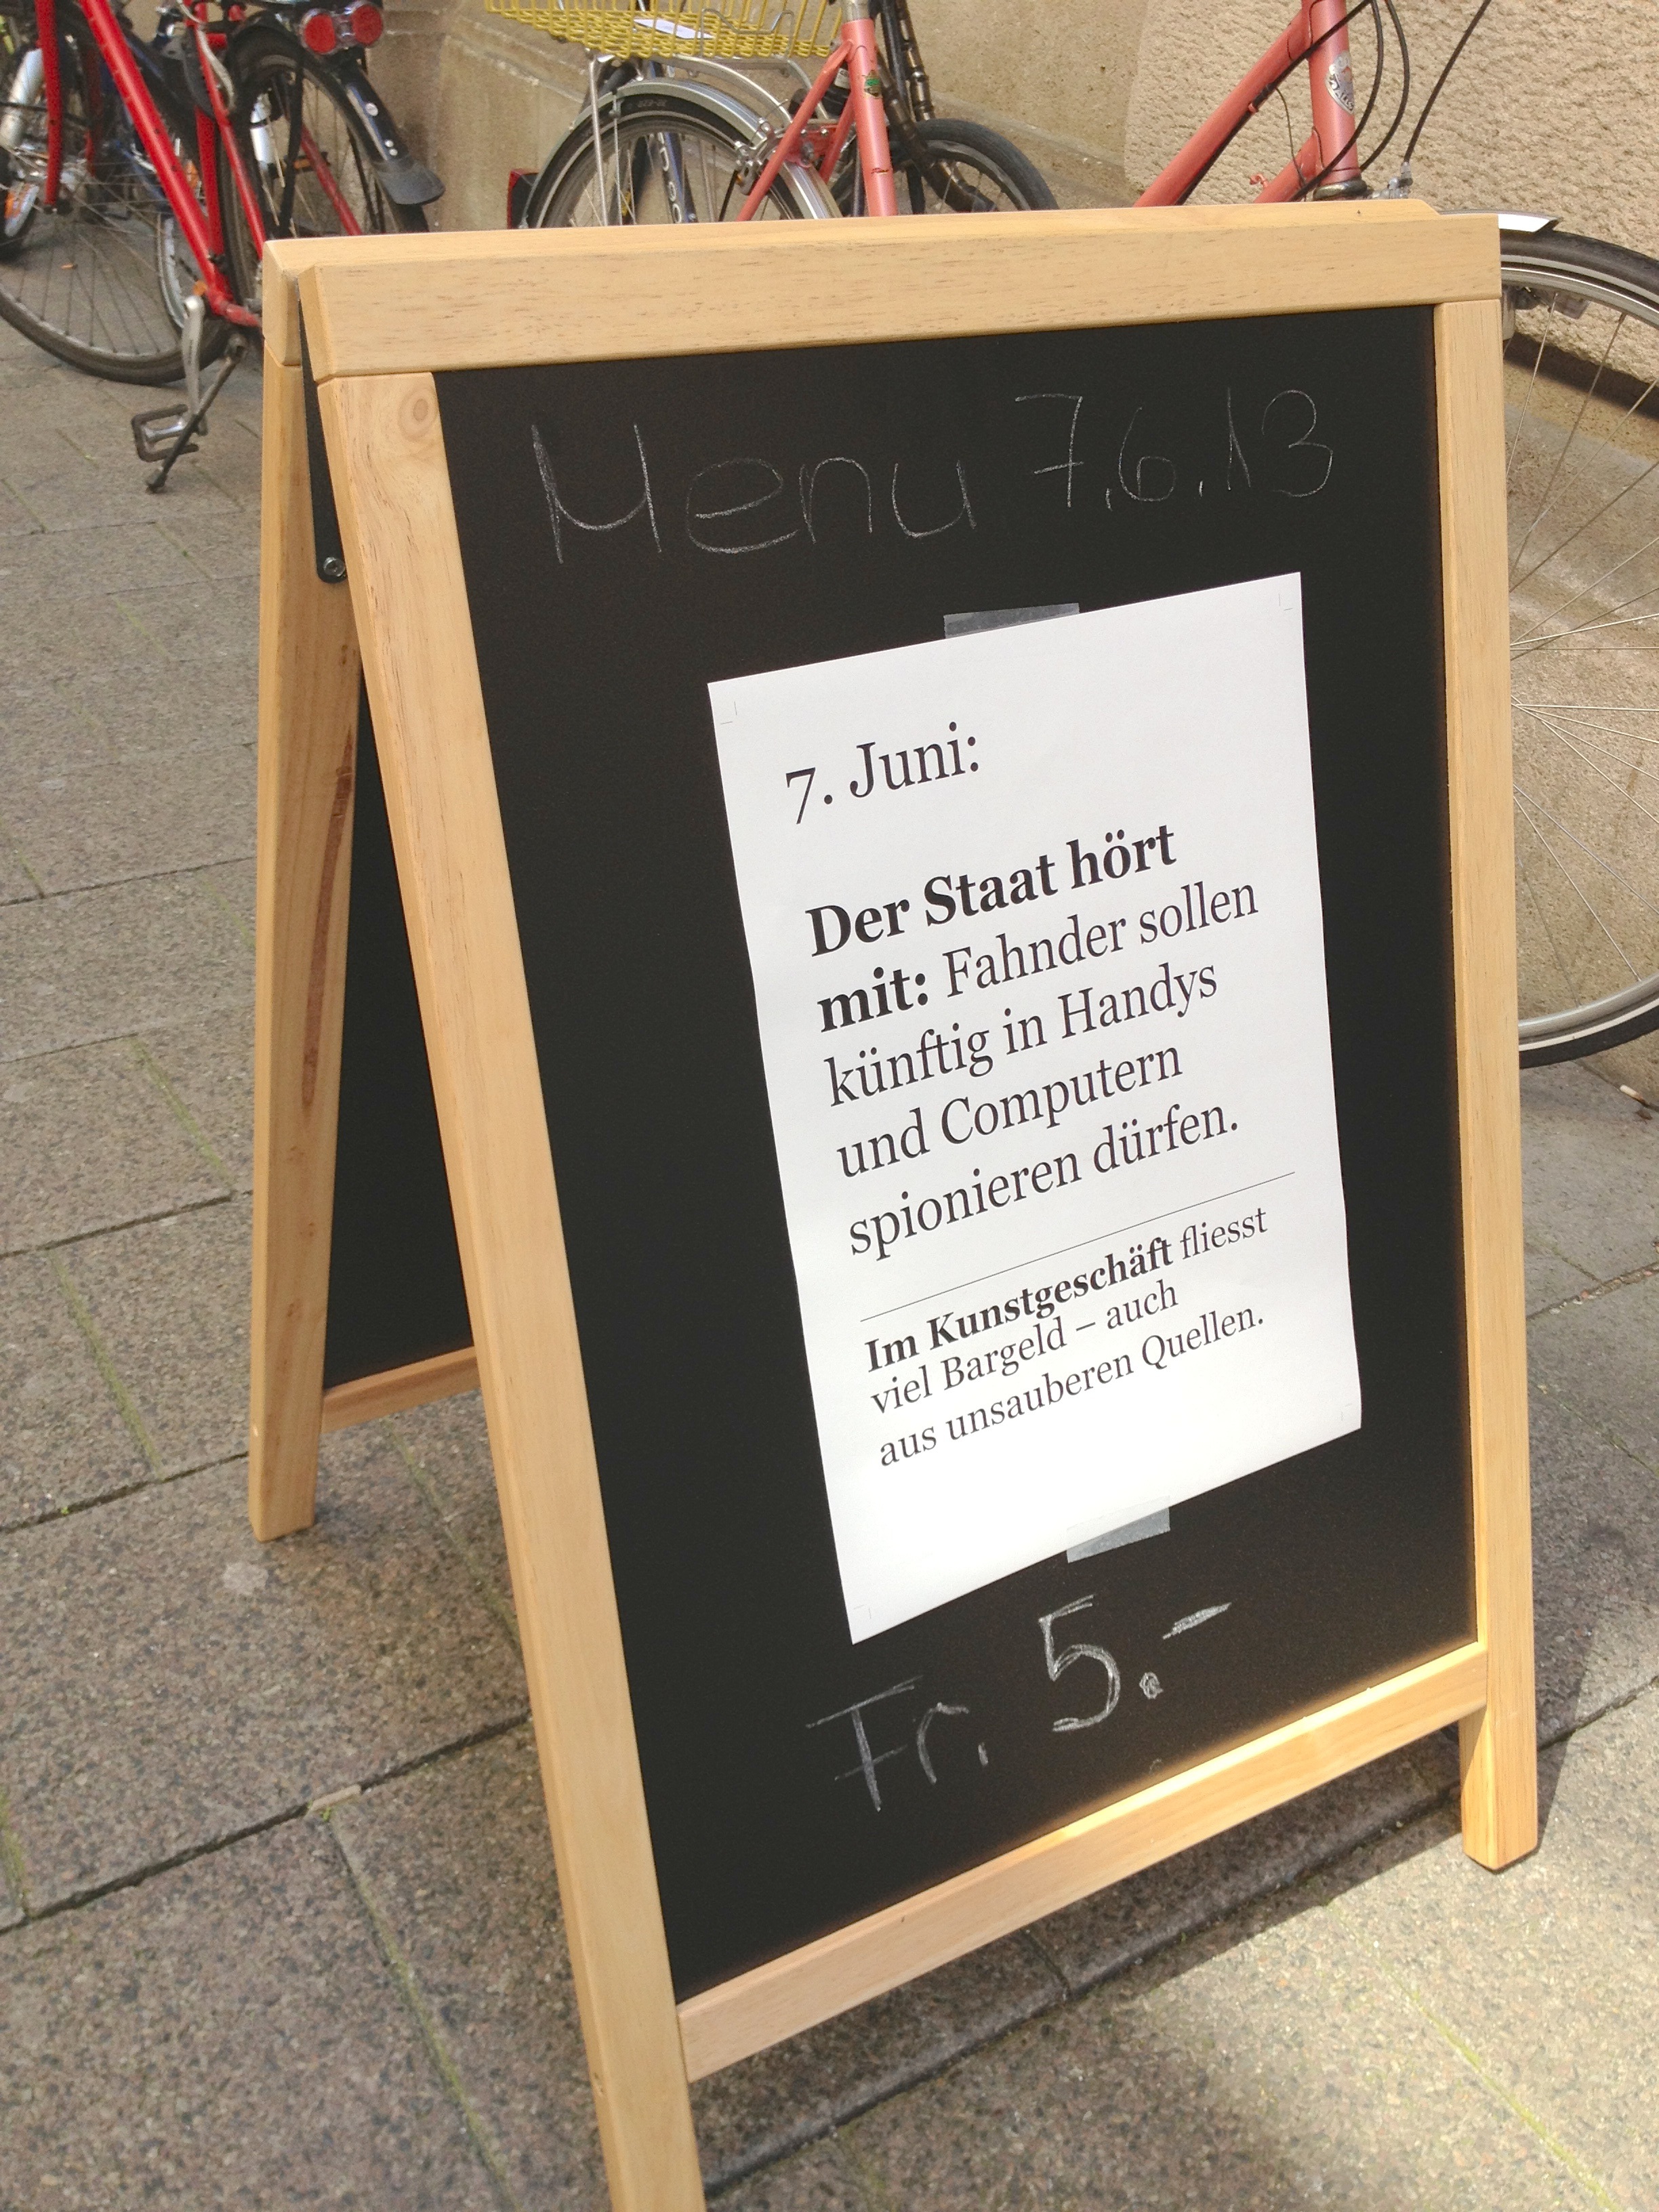 Menu 7.6.13
7. Juni:
Der Staat hört
mit: Fahnder sollen
künftig in Handys
und Computern
spionieren dürfen.
Im Kunstgeschäft fliesst
viel Bargeld – auch
aus unsauberen Quellen.
Fr. 5.-